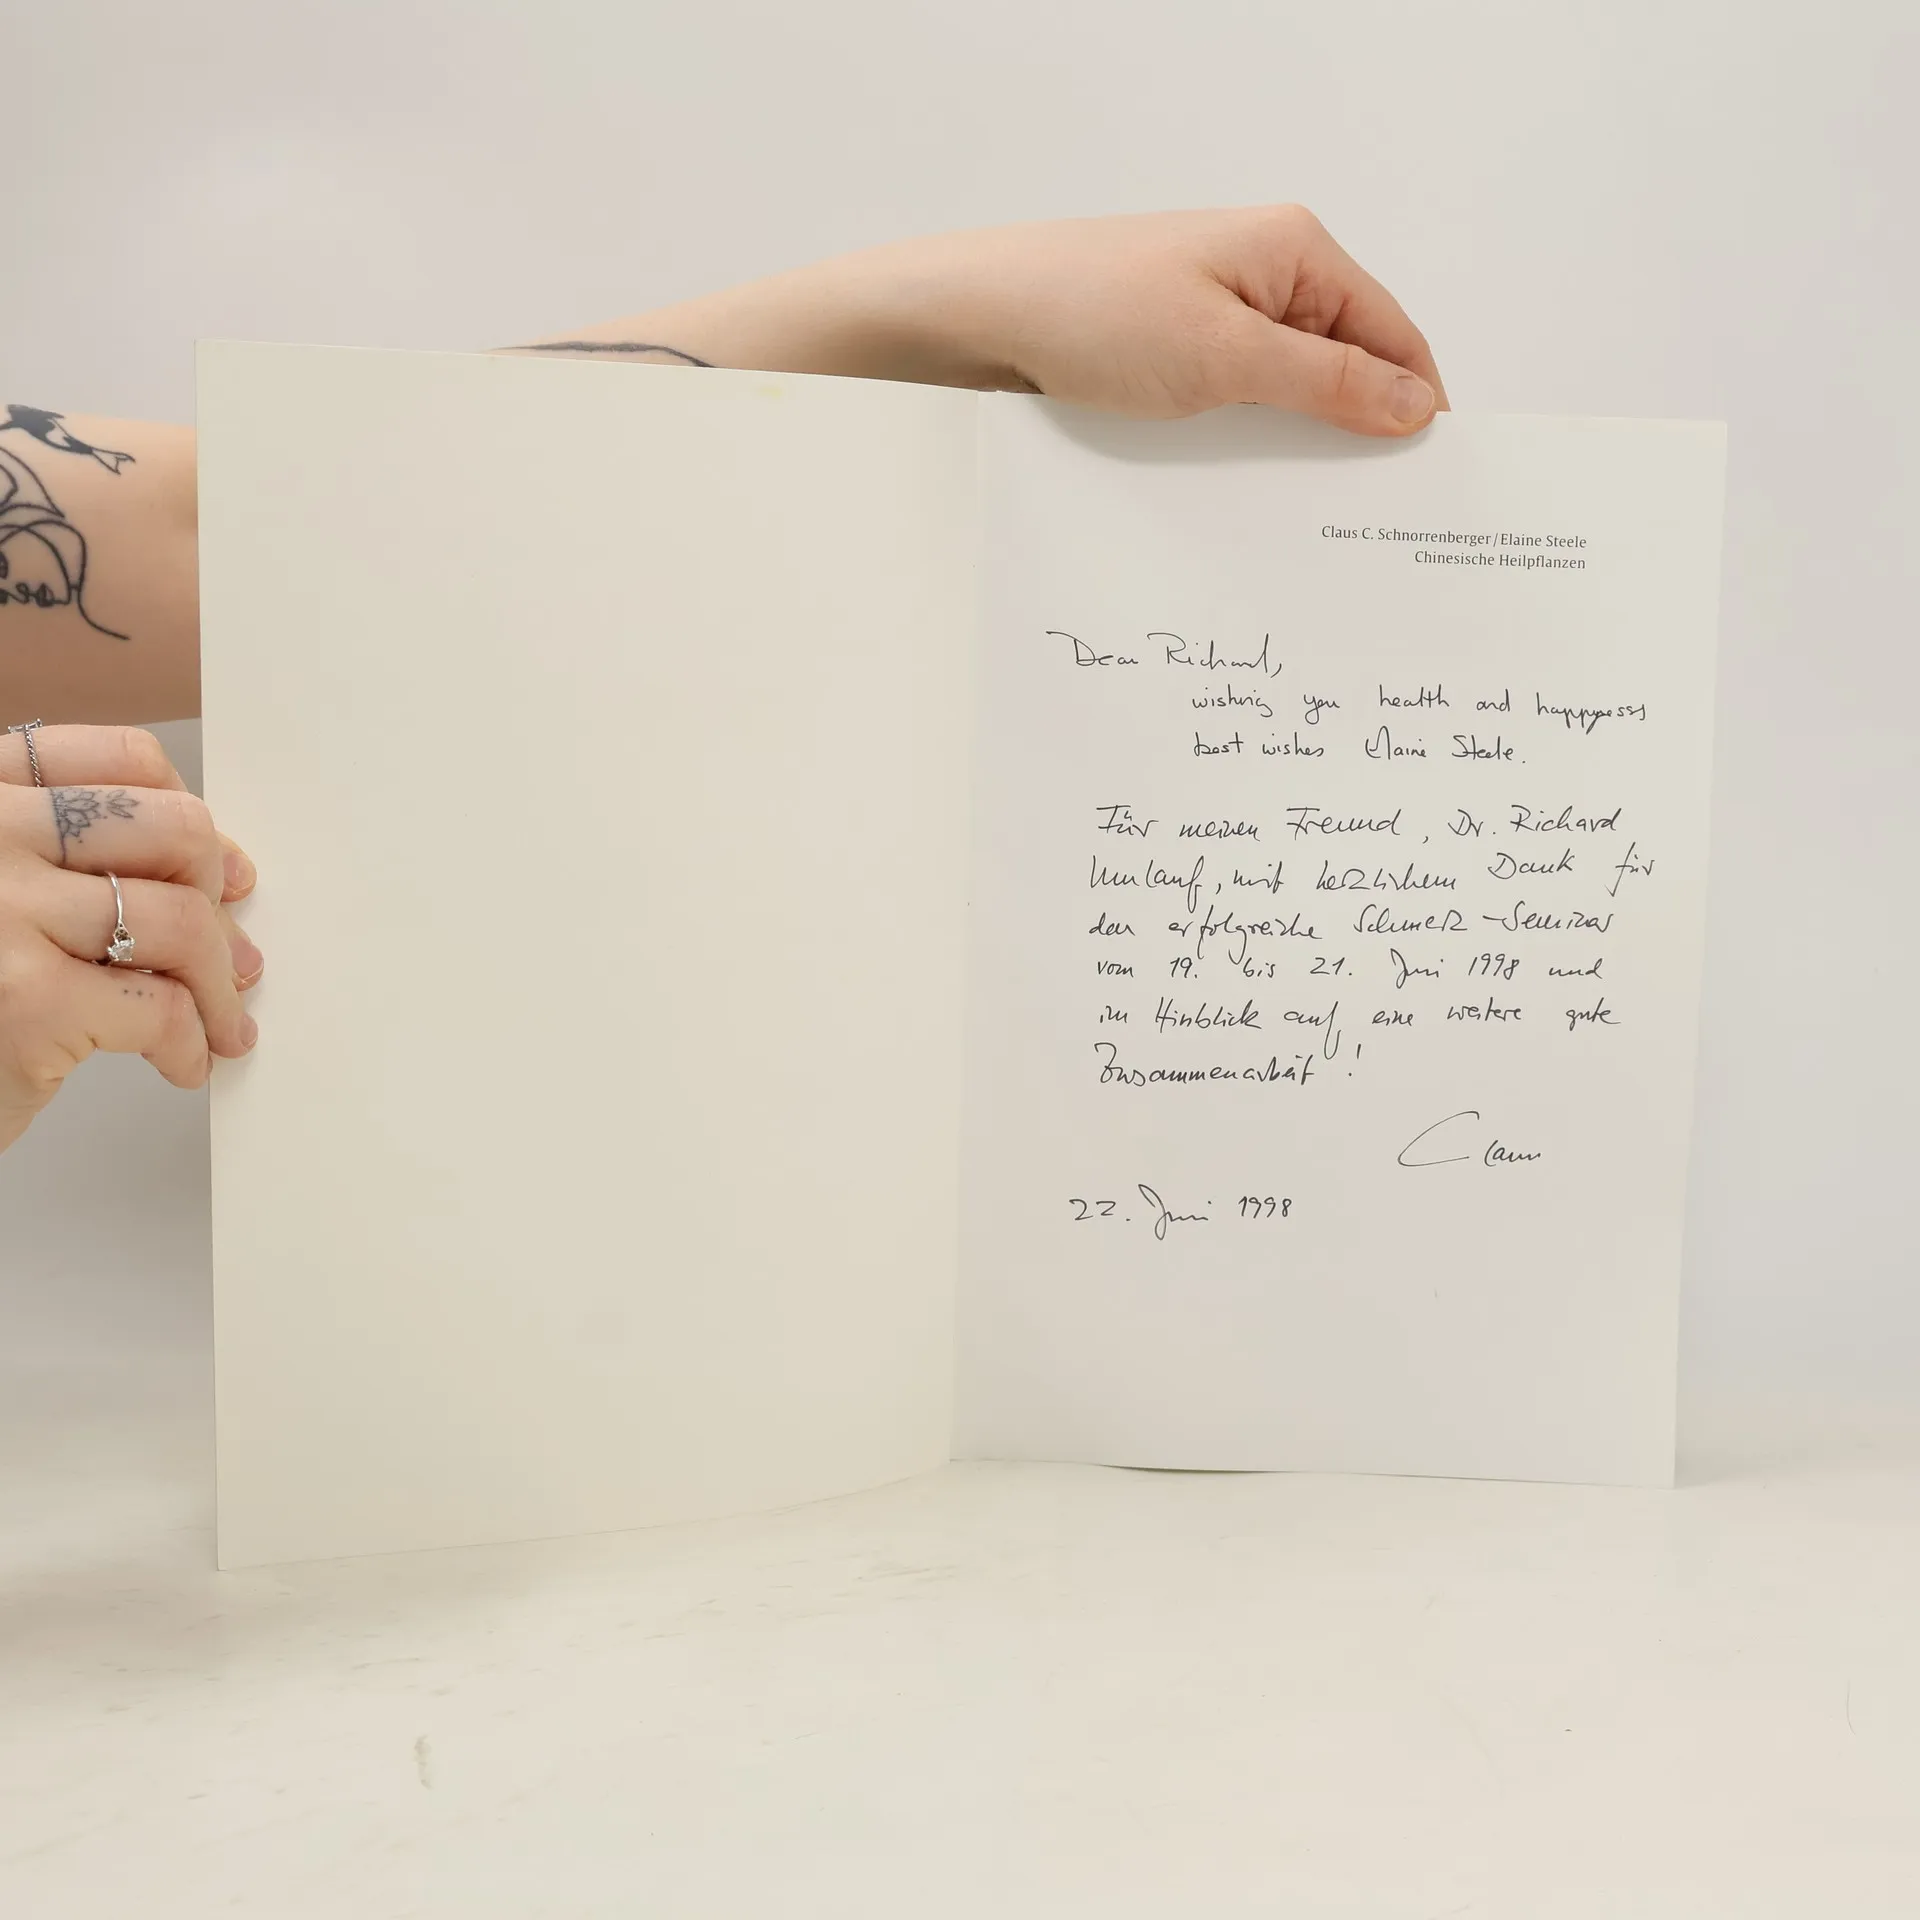 Claus C. Schnorrenberger/Elaine Steele
Chinesische Heilpflanzen
Dear Richard,
wishing you health and happyness
best wishes Elaine Steele.
Für meinen Freund, Dr. Richard
Umlauf, mit herzlichem Dank für
das erfolgreiche Schmerz-Seminar
vom 19. bis 21. Juni 1998 und
im Hinblick auf eine weitere gute
Zusammenarbeit!
Claus
22. Juni 1998